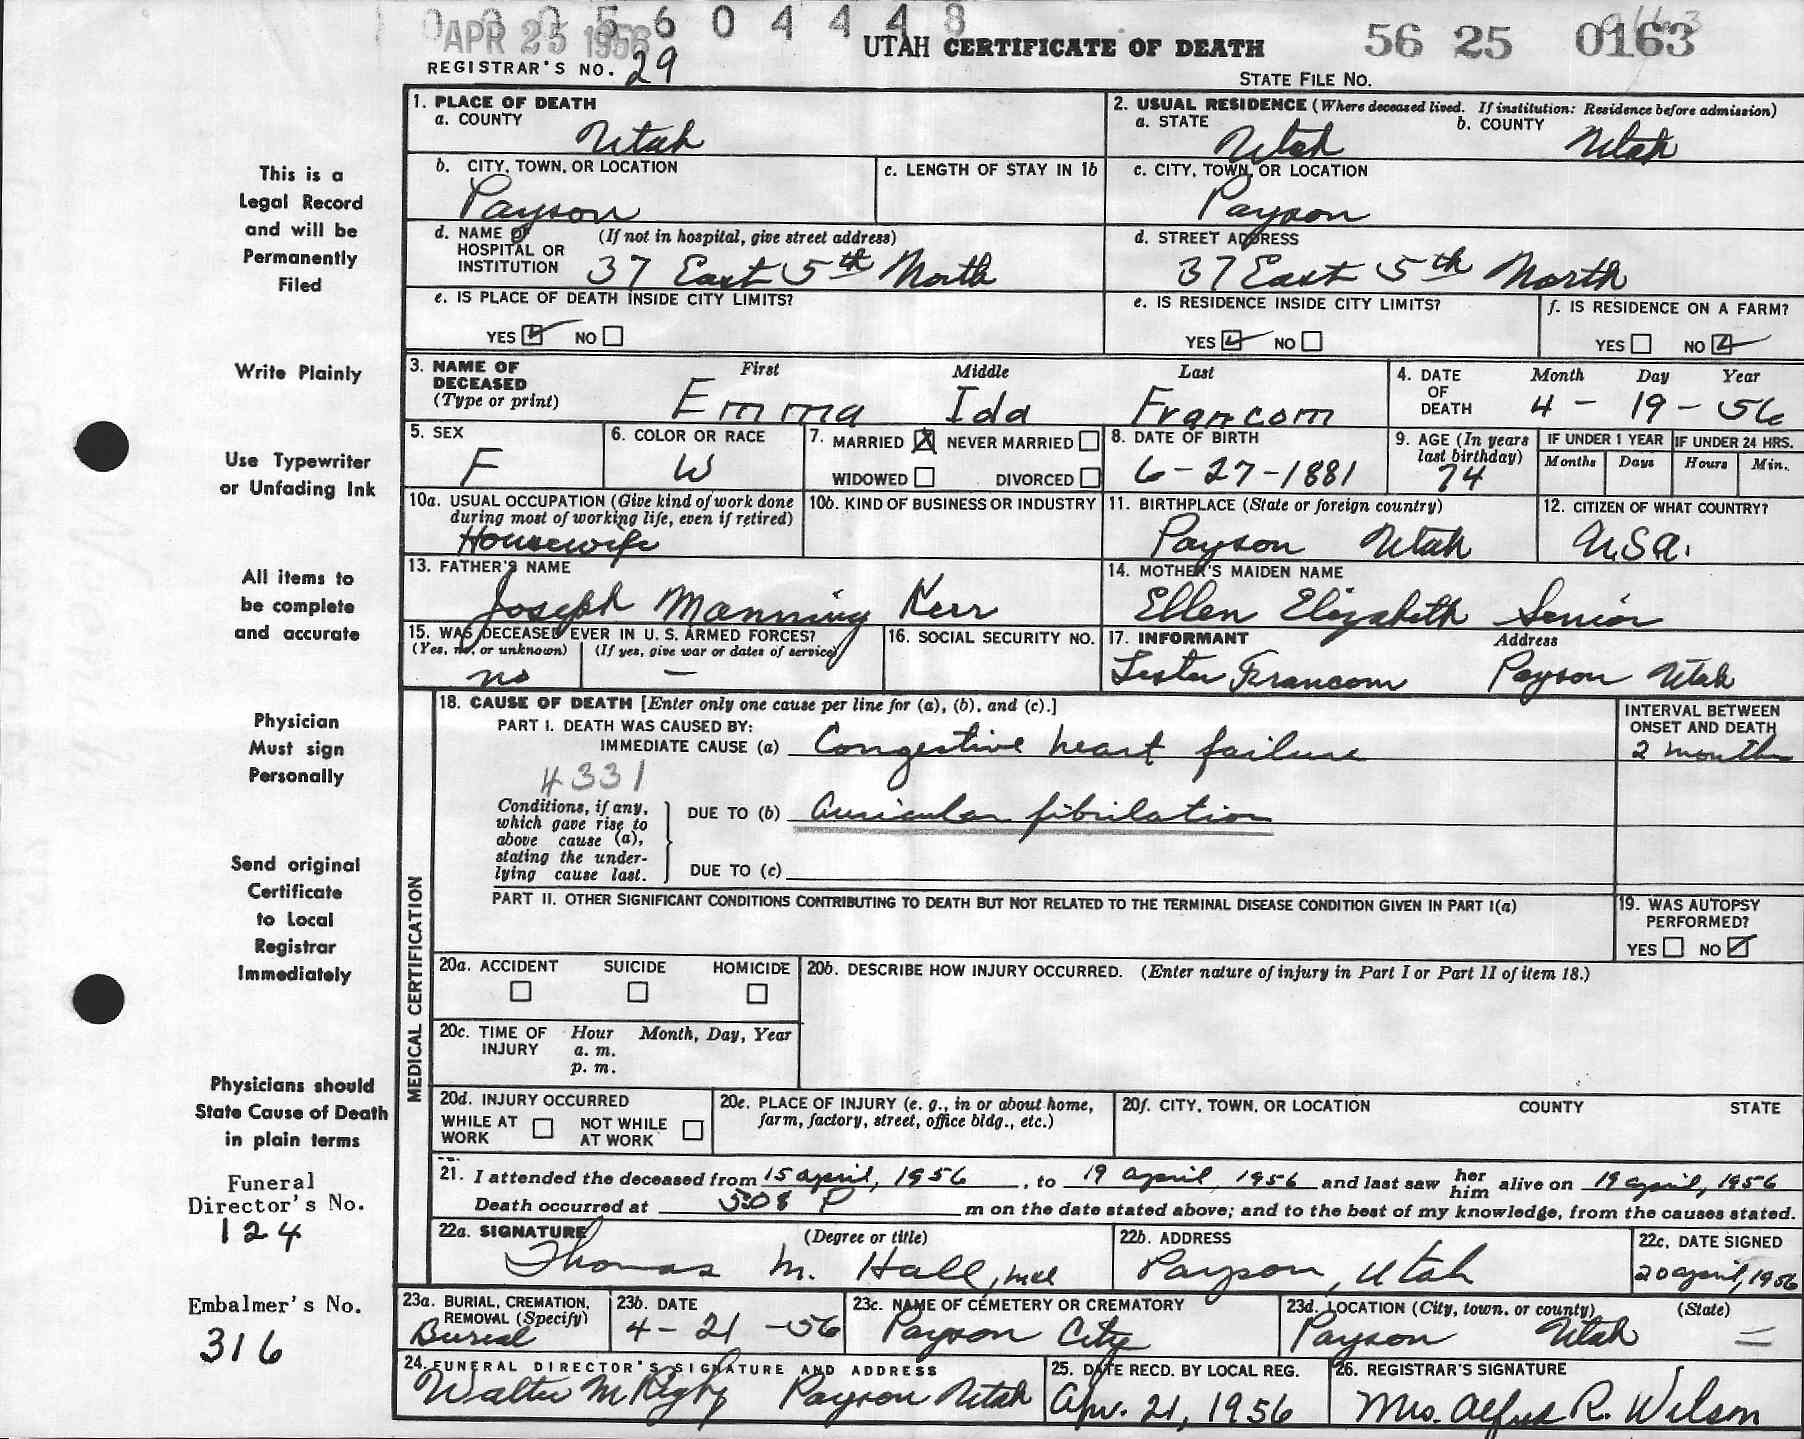 0 3 0 5 6 0 4 4 4 8
APR 25 1956
UTAH CERTIFICATE OF DEATH
56 25 0163
REGISTRAR'S NO. 29
STATE FILE NO.
1. PLACE OF DEATH
a. COUNTY Utah
2. USUAL RESIDENCE (Where deceased lived. If institution: Residence before admission)
a. STATE Utah b. COUNTY Utah
b. CITY, TOWN, OR LOCATION Payson
c. LENGTH OF STAY IN 1b
c. CITY, TOWN, OR LOCATION Payson
d. NAME OF HOSPITAL OR INSTITUTION (If not in hospital, give street address)
37 East 5th North
d. STREET ADDRESS
37 East 5th North
e. IS PLACE OF DEATH INSIDE CITY LIMITS?
YES NO
e. IS RESIDENCE INSIDE CITY LIMITS?
YES NO
f. IS RESIDENCE ON A FARM?
YES NO
3. NAME OF DECEASED (Type or print)
First Middle Last
Emma Ida Francom
4. DATE OF DEATH
Month Day Year
4 - 19 - 56
5. SEX
F
6. COLOR OR RACE
W
7. MARRIED X NEVER MARRIED
WIDOWED DIVORCED
8. DATE OF BIRTH
6-27-1881
9. AGE (In years last birthday)
74
IF UNDER 1 YEAR
Months Days
IF UNDER 24 HRS.
Hours Min.
10a. USUAL OCCUPATION (Give kind of work done during most of working life, even if retired)
Housewife
10b. KIND OF BUSINESS OR INDUSTRY
11. BIRTHPLACE (State or foreign country)
Payson Utah
12. CITIZEN OF WHAT COUNTRY?
U.S.A.
13. FATHER'S NAME
Joseph Manning Kerr
14. MOTHER'S MAIDEN NAME
Ellen Elizabeth Senior
15. WAS DECEASED EVER IN U. S. ARMED FORCES?
(Yes, no, or unknown) (If yes, give war or dates of service)
no —
16. SOCIAL SECURITY NO.
17. INFORMANT Address
Lester Francom Payson Utah
MEDICAL CERTIFICATION
18. CAUSE OF DEATH [Enter only one cause per line for (a), (b), and (c).]
PART I. DEATH WAS CAUSED BY:
IMMEDIATE CAUSE (a) Congestive heart failure
INTERVAL BETWEEN ONSET AND DEATH
2 months
4331
Conditions, if any, which gave rise to above cause (a), stating the underlying cause last.
DUE TO (b) Auricular fibrilation
DUE TO (c)
PART II. OTHER SIGNIFICANT CONDITIONS CONTRIBUTING TO DEATH BUT NOT RELATED TO THE TERMINAL DISEASE CONDITION GIVEN IN PART I(a)
19. WAS AUTOPSY PERFORMED?
YES NO
20a. ACCIDENT SUICIDE HOMICIDE
20b. DESCRIBE HOW INJURY OCCURRED. (Enter nature of injury in Part I or Part II of item 18.)
20c. TIME OF INJURY
Hour Month, Day, Year
a. m.
p. m.
20d. INJURY OCCURRED
WHILE AT WORK NOT WHILE AT WORK
20e. PLACE OF INJURY (e. g., in or about home, farm, factory, street, office bldg., etc.)
20f. CITY, TOWN, OR LOCATION COUNTY STATE
21. I attended the deceased from 15 april, 1956, to 19 april 1956 and last saw her him alive on 19 april, 1956
Death occurred at 508 P m on the date stated above; and to the best of my knowledge, from the causes stated.
22a. SIGNATURE (Degree or title)
Thomas M. Hall, md
22b. ADDRESS
Payson, Utah
22c. DATE SIGNED
20 april, 1956
23a. BURIAL, CREMATION, REMOVAL (Specify)
Burial
23b. DATE
4-21-56
23c. NAME OF CEMETERY OR CREMATORY
Payson City
23d. LOCATION (City, town, or county) (State)
Payson Utah —
24. FUNERAL DIRECTOR'S SIGNATURE AND ADDRESS
Walter M Rigby Payson Utah
25. DATE RECD. BY LOCAL REG.
Apr. 21, 1956
26. REGISTRAR'S SIGNATURE
Mrs. Alfred R. Wilson
This is a
Legal Record
and will be
Permanently
Filed
Write Plainly
Use Typewriter
or Unfading Ink
All items to
be complete
and accurate
Physician
Must sign
Personally
Send original
Certificate
to Local
Registrar
Immediately
Physicians should
State Cause of Death
in plain terms
Funeral
Director's No.
124
Embalmer's No.
316